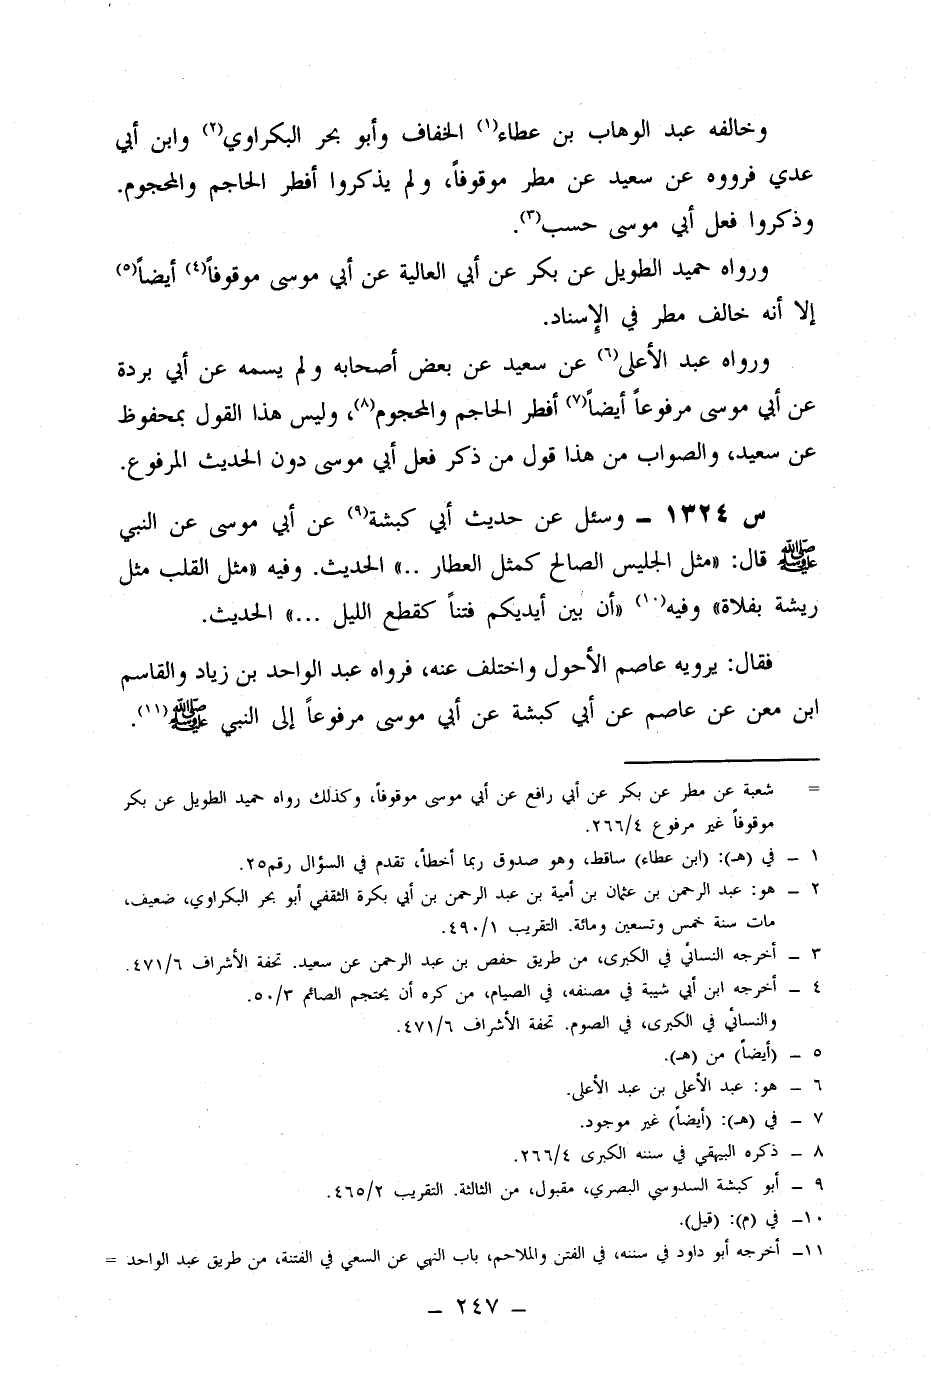 وخالفه عبد الوهاب بن عطاء(١) الخفاف وأبو بحر البكراوي(٢) وابن أبي
عدي فرووه عن سعيد عن مطر موقوفاً، ولم يذكروا أفطر الحاجم والمحجوم.
وذكروا فعل أبي موسى حسب(٣).
ورواه حميد الطويل عن بكر عن أبي العالية عن أبي موسى موقوفاً(٤) أيضاً(٥)
إلا أنه خالف مطر في الإسناد.
ورواه عبد الأعلى(٦) عن سعيد عن بعض أصحابه ولم يسمه عن أبي بردة
عن أبي موسى مرفوعاً أيضاً(٧) أفطر الحاجم والمحجوم(٨)، وليس هذا القول بمحفوظ
عن سعيد، والصواب من هذا قول من ذكر فعل أبي موسى دون الحديث المرفوع.
س ١٣٢٤ ـ وسئل عن حديث أبي كبشة(٩) عن أبي موسى عن النبي
ﷺ قال: «مثل الجليس الصالح كمثل العطار ..» الحديث. وفيه «مثل القلب مثل
ريشة بفلاة» وفيه(١٠) «أن بين أيديكم فتناً كقطع الليل ...» الحديث.
فقال: يرويه عاصم الأحول واختلف عنه، فرواه عبد الواحد بن زياد والقاسم
ابن معن عن عاصم عن أبي كبشة عن أبي موسى مرفوعاً إلى النبي ﷺ(١١).
= شعبة عن مطر عن بكر عن أبي رافع عن أبي موسى موقوفاً، وكذلك رواه حميد الطويل عن بكر
موقوفاً غير مرفوع ٢٦٦/٤.
١ ـ في (هـ): (ابن عطاء) ساقط، وهو صدوق ربما أخطأ، تقدم في السؤال رقم٢٥.
٢ ـ هو: عبد الرحمن بن عثمان بن أمية بن عبد الرحمن بن أبي بكرة الثقفي أبو بحر البكراوي، ضعيف،
مات سنة خمس وتسعين ومائة. التقريب ٤٩٠/١.
٣ ـ أخرجه النسائي في الكبرى، من طريق حفص بن عبد الرحمن عن سعيد. تحفة الأشراف ٤٧١/٦.
٤ ـ أخرجه ابن أبي شيبة في مصنفه، في الصيام، من كره أن يحتجم الصائم ٥٠/٣.
والنسائي في الكبرى، في الصوم. تحفة الأشراف ٤٧١/٦.
٥ ـ (أيضاً) من (هـ).
٦ ـ هو: عبد الأعلى بن عبد الأعلى.
٧ ـ في (هـ): (أيضاً) غير موجود.
٨ ـ ذكره البيهقي في سننه الكبرى ٢٦٦/٤.
٩ ـ أبو كبشة السدوسي البصري، مقبول، من الثالثة. التقريب ٤٦٥/٢.
١٠ـ في (م): (قيل).
١١ـ أخرجه أبو داود في سننه، في الفتن والملاحم، باب النهي عن السعي في الفتنة، من طريق عبد الواحد =
ـ ٢٤٧ ـ